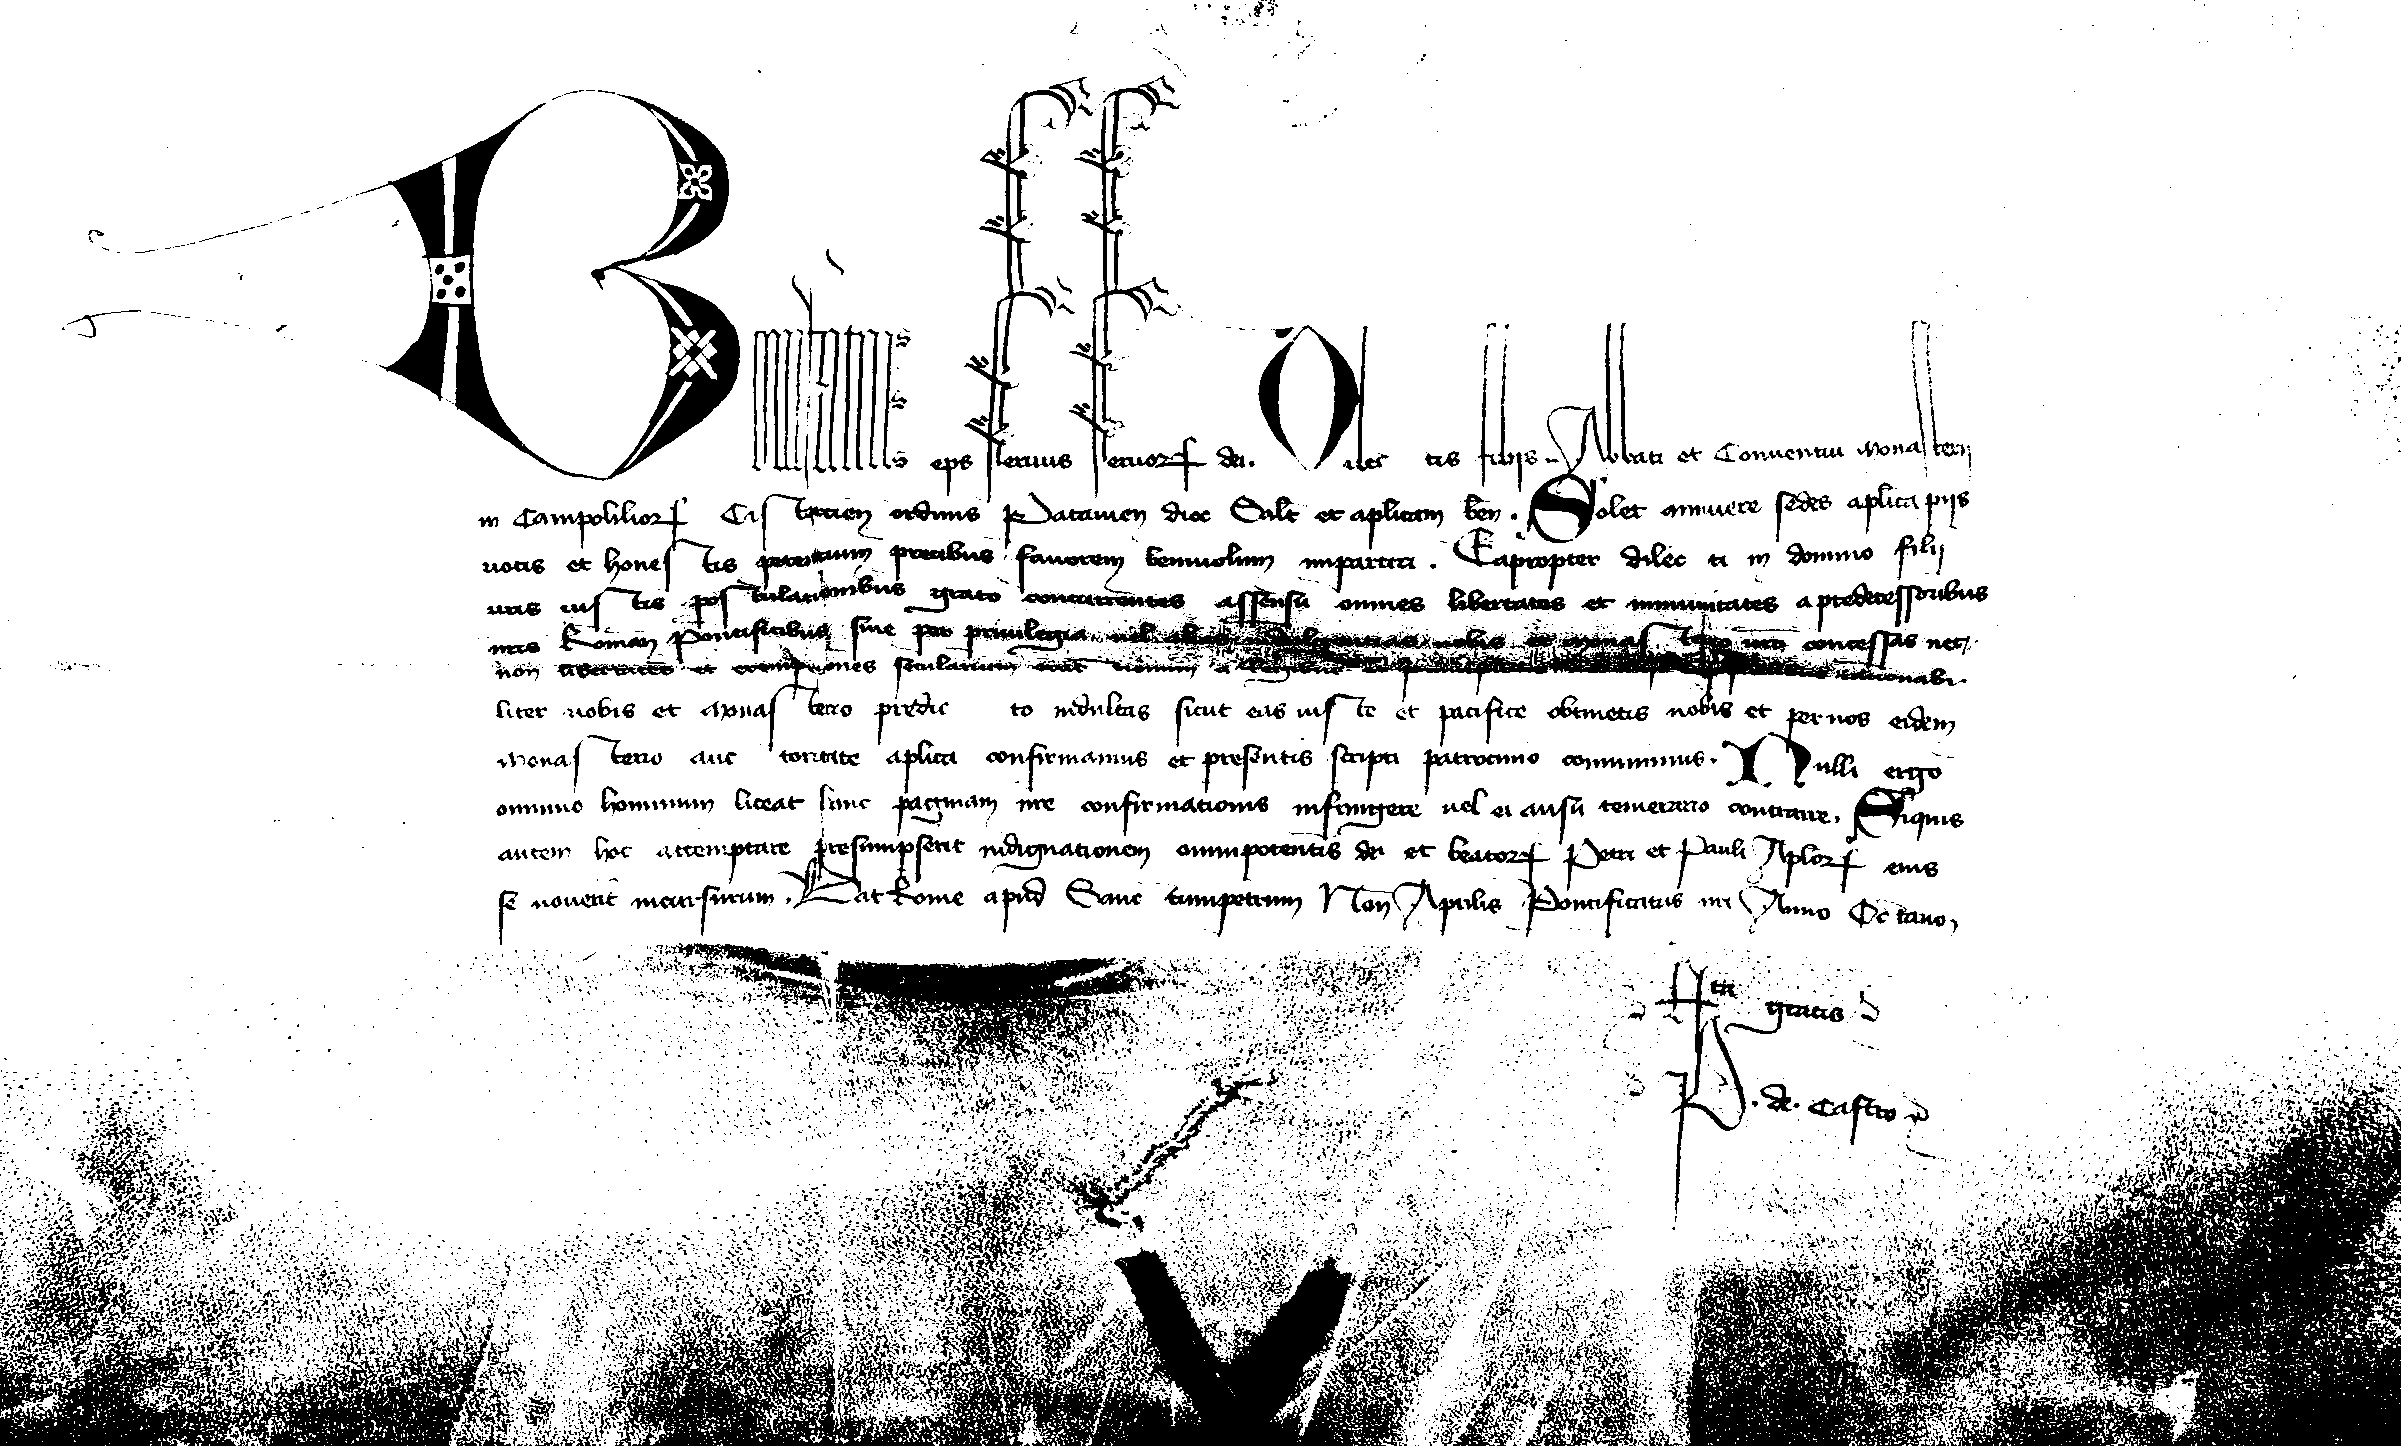 Bonifatius eps seruus seruoꝝ dei. Dilectis filijs Abbati et Conuentui monasterij
in Campolilioꝝ Cistercien ordinis Patauien dioc Salt et aplicam ben. Solet annuere sedes aplica pijs
uotis et honestis petentium precibus fauorem beniuolum impartiri. Eapropter dilecti in domino filij
uris iustis postulationibus grato concurrentes assensu omnes libertates et immunitates a predecessoribus
nris Roman Pontificibus siue per priuilegia uel alias indulgentias uobis et monasterio uro concessas nec
non libertates et exemptiones secularium exact rationabi
liter uobis et monasterio predicto indultas sicut eas iuste et pacifice obtinetis uobis et per uos eidem
monasterio auctoritate aplica confirmamus et presentis scripti patrocinio communimus. Nulli ergo
omnino hominum liceat hanc paginam nre confirmationis infringere uel ei ausu temerario contraire. Siquis
autem hoc attemptare presumpserit indignationem omnipotentis dei et beatoꝝ Petri et Pauli Aploꝝ eius
se nouerit incursurum. Dat Rome apud Sanctumpetrum Non Aprilis Pontificatus nri Anno Octauo
gratis
P. de. Castro